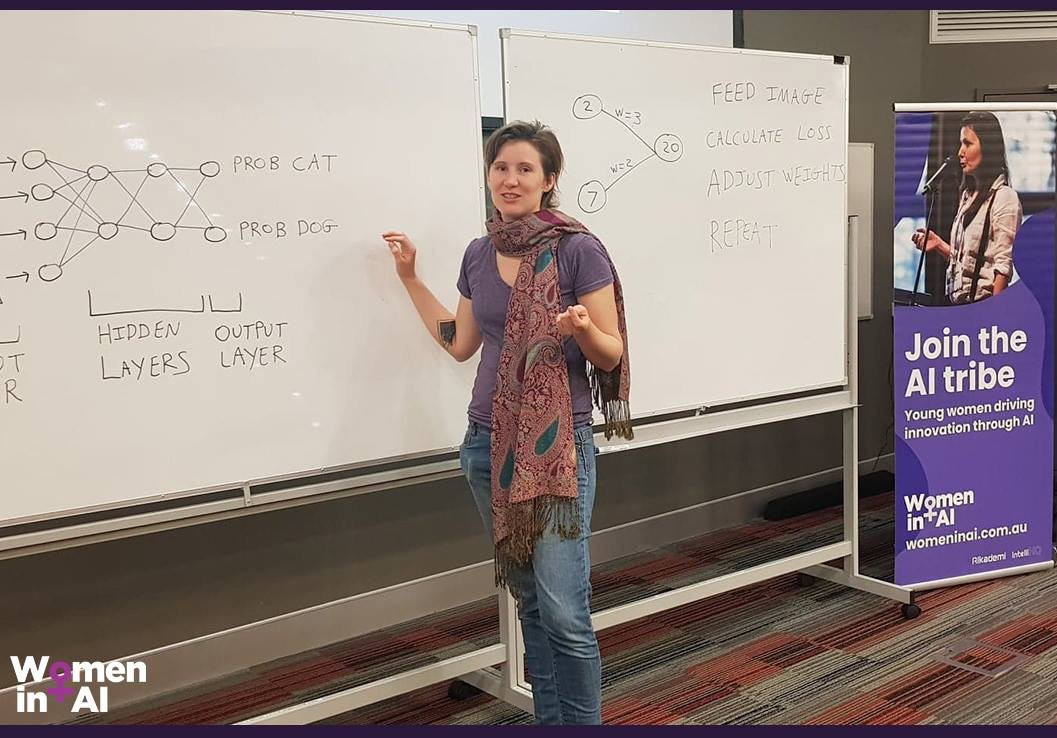 PROB CAT
PROB DOG
HIDDEN
LAYERS
OUTPUT
LAYER
2
w=3
20
w=2
7
FEED IMAGE
CALCULATE LOSS
ADJUST WEIGHTS
REPEAT
Join the
AI tribe
Young women driving
innovation through AI
Women
in AI
womeninai.com.au
AIkademi IntelliHQ
Women
in AI